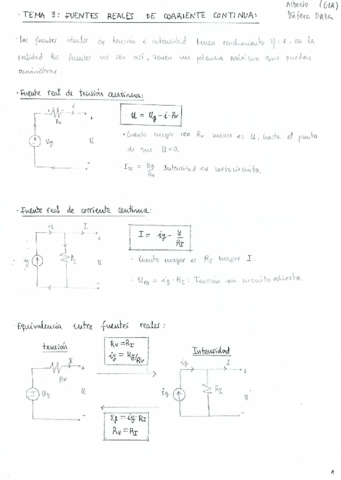 Alberto (GIA)
- TEMA 8: FUENTES REALES DE CORRIENTE CONTINUA:
Las fuentes ideales de tensión e intensidad tienen rendimiento η=1. En la
realidad las fuentes no son así, tienen una potencia máxima que pueden
suministrar.
- Fuente real de tensión continua:
U = Ug - i · Rv
Rv
I
Ug
U
· Cuanto mayor sea Rv menor es U, hasta el punto
de que U=0.
Icc = Ug/Rv Intensidad en cortocircuito.
- Fuente real de corriente continua:
I = ig - U/RI
ig
I
RI
U
· Cuanto mayor es RI mayor I.
· Uco = ig · RI : Tensión en circuito abierto.
Equivalencia entre fuentes reales:
tensión
Rv = RI
ig = Ug/Rv
Intensidad
Rv
I
Ug
U
Ug = ig · RI
Rv = RI
ig
I
RI
U
1